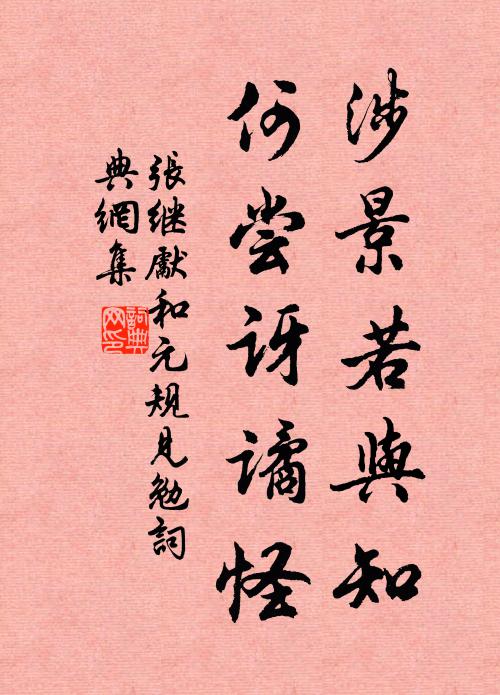 涉景若與知
何尝讶譎怪
張继獻和元規見勉詞
典網集
詞典網印